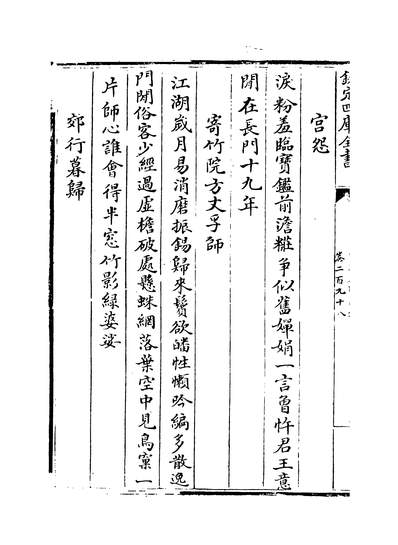 欽定四庫全書
卷二百九十八
宫怨
淚粉羞臨寳鑑前澹粧争似舊嬋娟一言曾忤君王意
閉在長門十九年
寄竹院方丈孚師
江湖歲月易消磨振錫歸來鬢欲皤性懶吟編多散逸
門閒俗客少經過虚檐破處懸蛛網落葉空中見鳥窠一
片師心誰會得半窓竹影緑婆娑
郊行暮歸